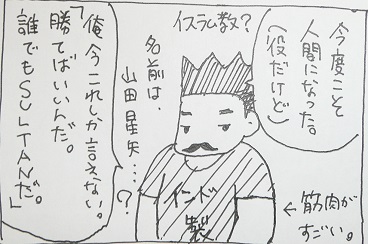 今度こそ
人間になった。
(役だけど)
イスラム教?
名前は、
山田星矢…?
「俺今これしか言えない。
勝てばいいんだ。
誰でもSULTANだ。」
インド
製
←筋肉が
すごい。